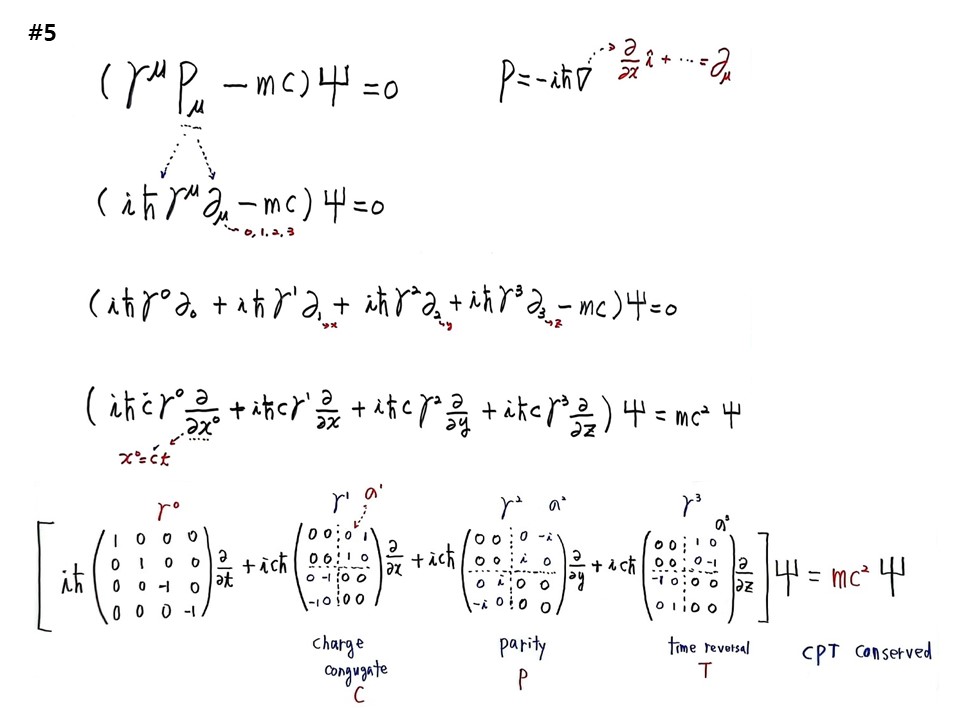 #5
(γ^μ P_μ − mc)Ψ = 0
P = −iħ∇ ∂/∂x î + ⋯ = ∂_μ
(iħγ^μ ∂_μ − mc)Ψ = 0
0, 1, 2, 3
(iħγ⁰∂₀ + iħγ¹∂₁ + iħγ²∂₂ + iħγ³∂₃ − mc)Ψ = 0
x y z
(iħcγ⁰ ∂/∂x⁰ + iħcγ¹ ∂/∂x + iħcγ² ∂/∂y + iħcγ³ ∂/∂z) Ψ = mc² Ψ
x⁰ = ct
γ⁰ γ¹ σ¹ γ² σ² γ³ σ³
[ iħ (1 0 0 0 / 0 1 0 0 / 0 0 -1 0 / 0 0 0 -1) ∂/∂t + icħ (0 0 0 1 / 0 0 1 0 / 0 -1 0 0 / -1 0 0 0) ∂/∂x + icħ (0 0 0 -i / 0 0 i 0 / 0 i 0 0 / -i 0 0 0) ∂/∂y + icħ (0 0 1 0 / 0 0 0 -1 / -1 0 0 0 / 0 1 0 0) ∂/∂z ] Ψ = mc² Ψ
charge parity time reversal CPT conserved
congugate P T
C